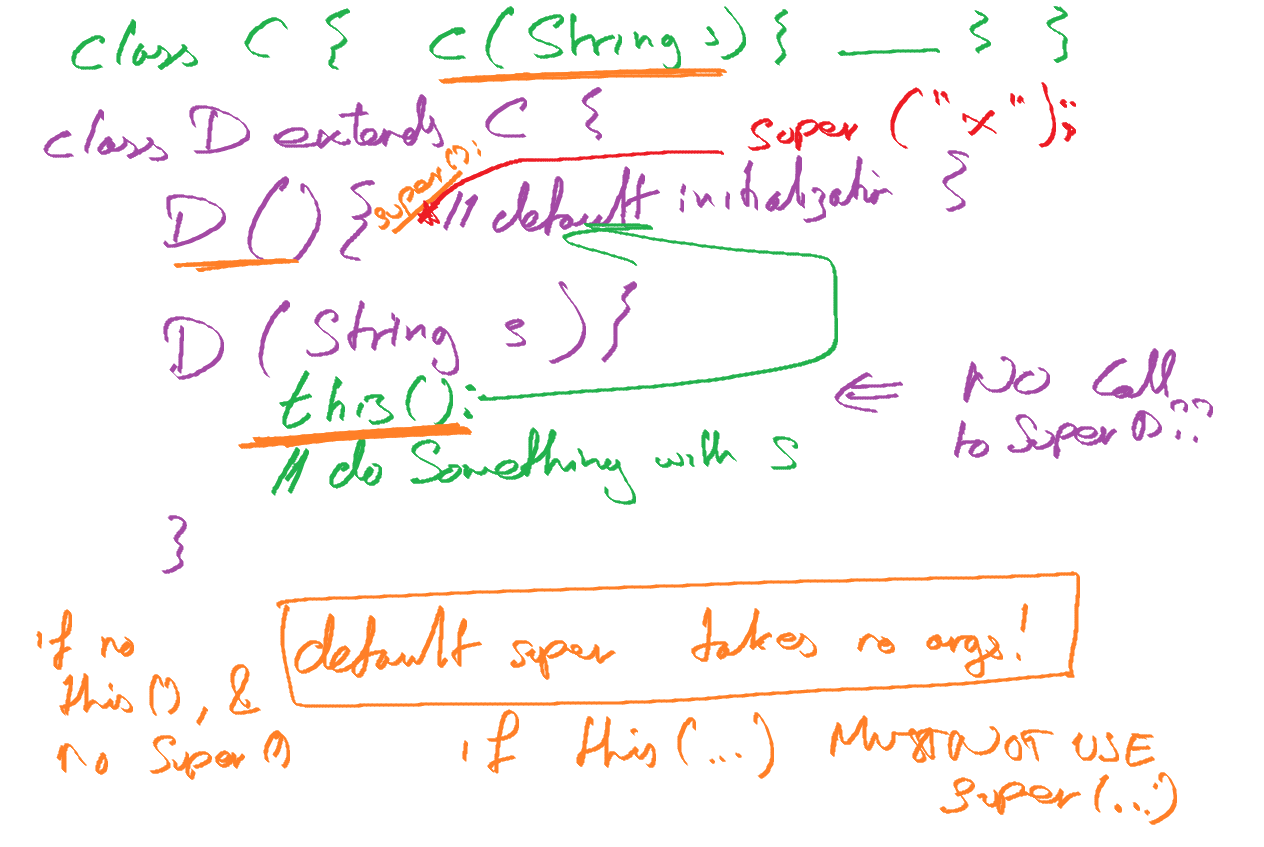 class C { C(String s) { ___ } }
class D extends C {
super ("x");
super();
D() { // default initialization }
D (String s) {
this();
// do something with s
}
⇐ NO Call
to super()??
if no
this(), &
no super()
default super takes no args!
if this(...) MUST NOT USE
super(...)